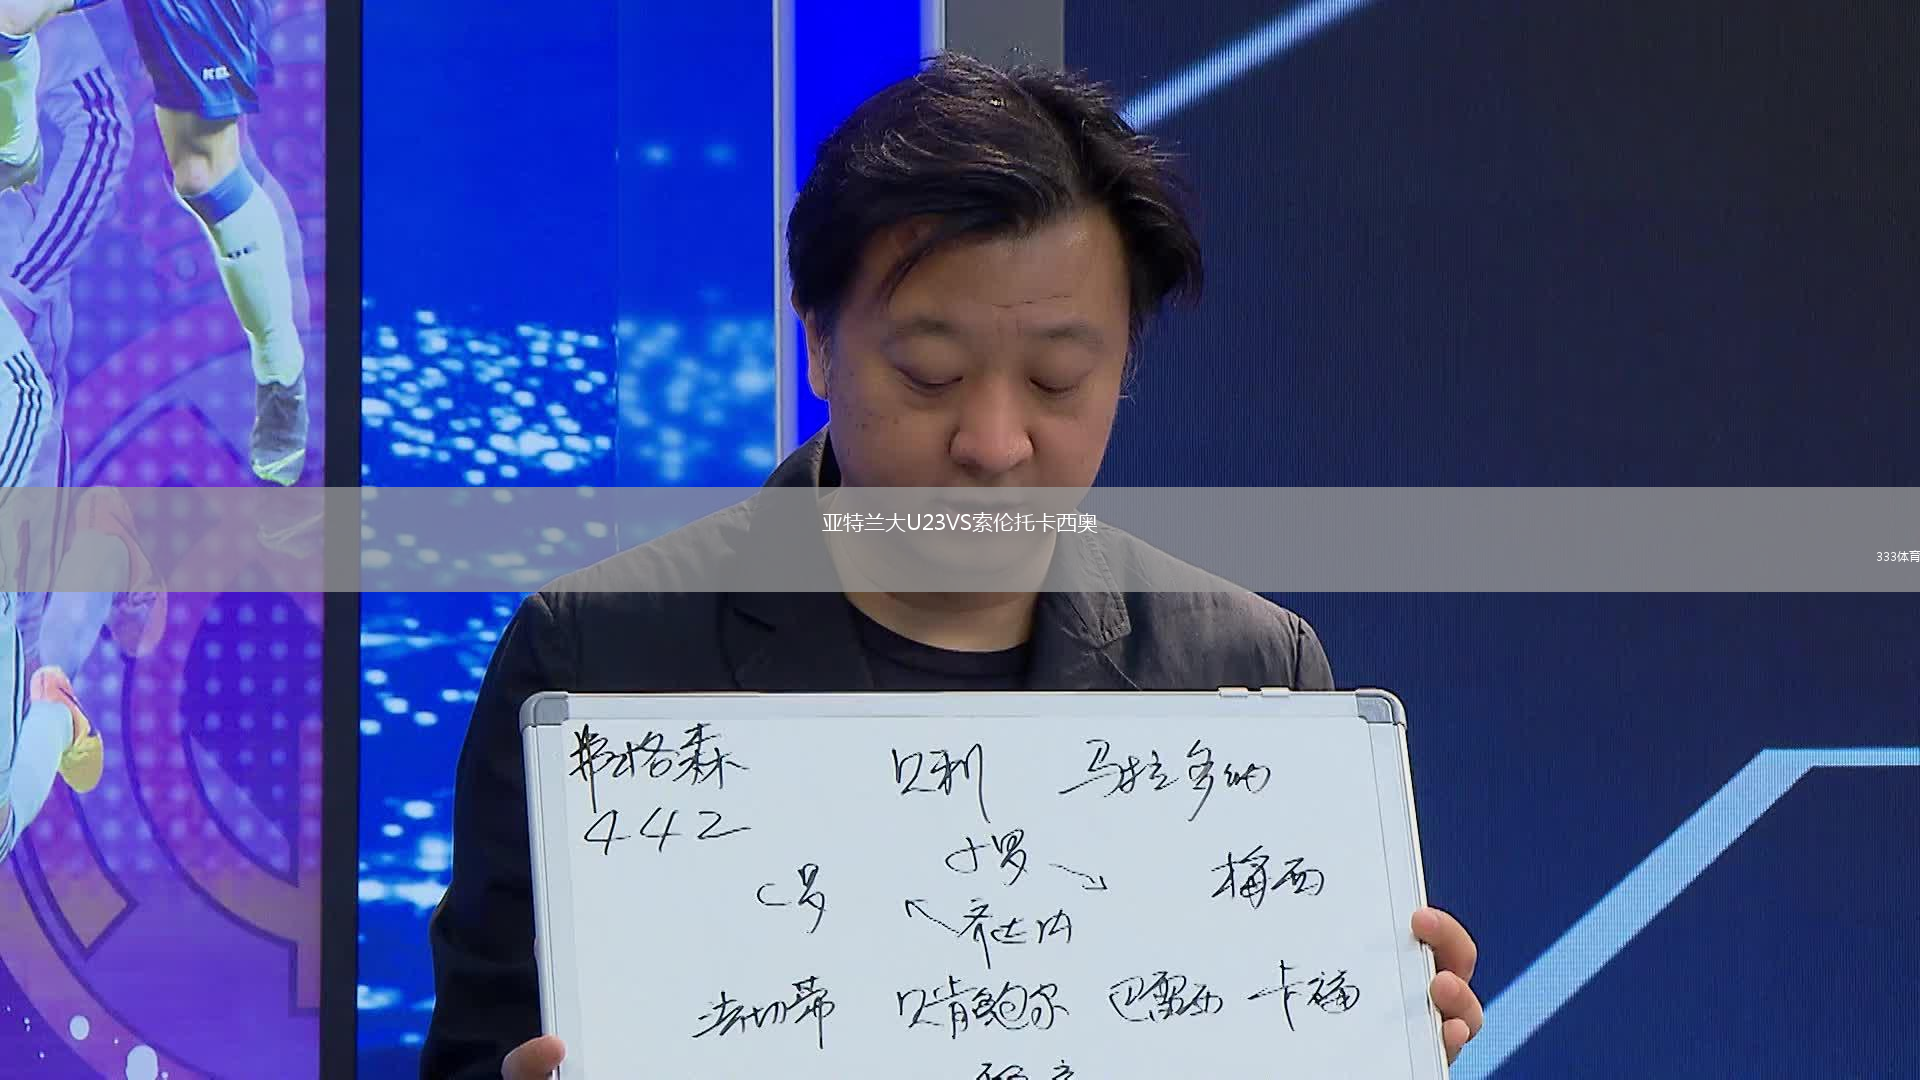 亚特兰大U23VS索伦托卡西奥
333体育
弗格森 贝利 马拉多纳
442
小罗
C罗 梅西
齐达内
法切蒂 贝肯鲍尔 巴雷西 卡福